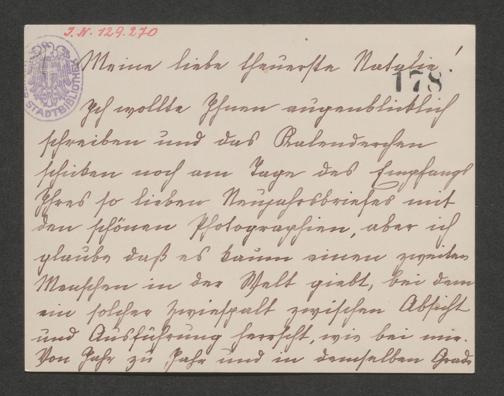 J.N. 129.270
STADTBIBLIOTHEK
178
Meine liebe theuerste Natalie!
Ich wollte Ihnen augenblicklich
schreiben und das Kalenderchen
schicken noch am Tage des Empfangs
Ihres so lieben Neujahrsbriefes mit
den schönen Photographien, aber ich
glaube daß es kaum einen zweiten
Menschen in der Welt giebt, bei dem
ein solcher Zwiespalt zwischen Absicht
und Ausführung herrscht, wie bei mir.
Von Jahr zu Jahr und in demselben Grade